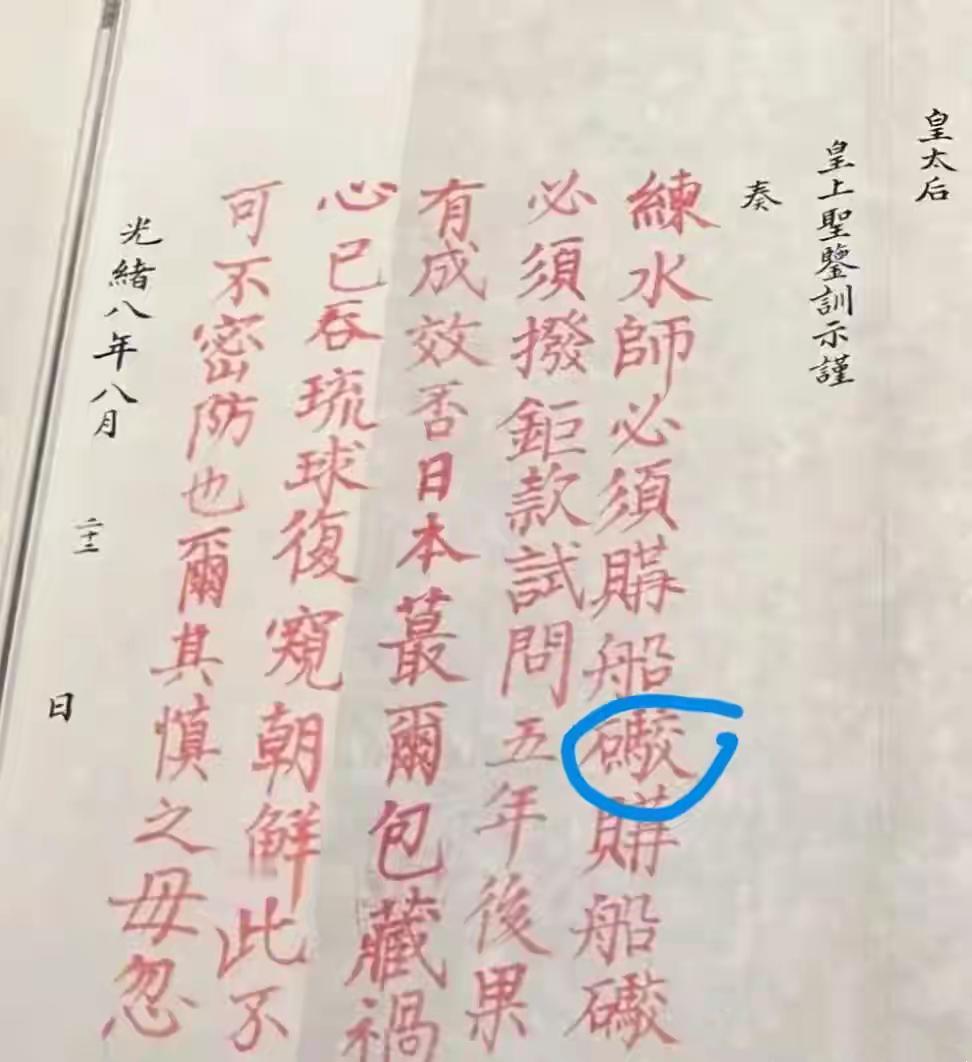 皇太后
皇上聖鑒訓示謹
奏
練水師必須購船礮購船礮
必須撥鉅款試問五年後果
有成效否日本蕞爾包藏禍
心已吞琉球復窺朝鮮此不
可不密防也爾其慎之毋忽
光緒八年八月 二十二 日